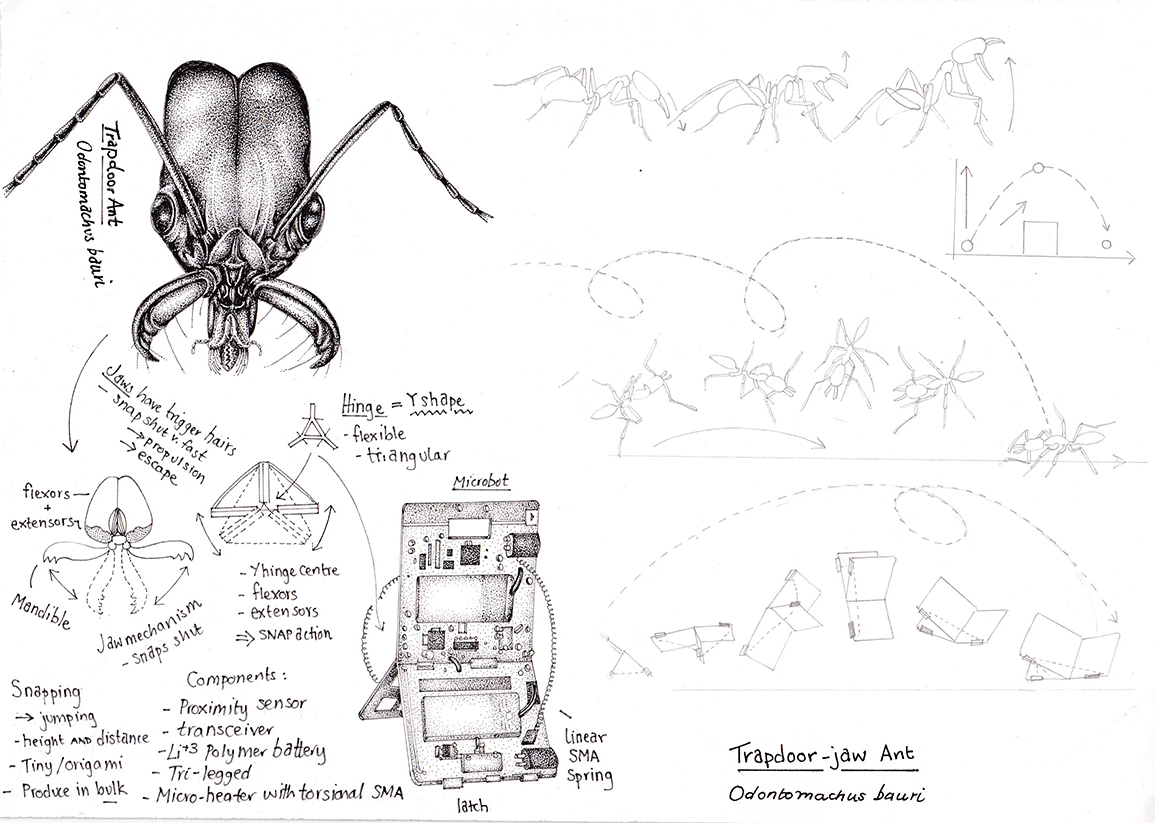 Trapdoor Ant
Odontomachus bauri
Jaws have trigger hairs
- snap shut v. fast
→ propulsion
→ escape
Hinge = Y shape
- flexible
- triangular
flexors
+
extensors
Mandible
Jaw mechanism
- snaps shut
- Y hinge centre
- flexors
- extensors
⇒ SNAP action
Microbot
Snapping
→ jumping
- height AND distance
- Tiny/origami
- Produce in bulk
Components :
- Proximity sensor
- transceiver
- Li+3 polymer battery
- Tri-legged
- Micro-heater with torsional SMA
linear
SMA
Spring
latch
Trapdoor-jaw Ant
Odontomachus bauri